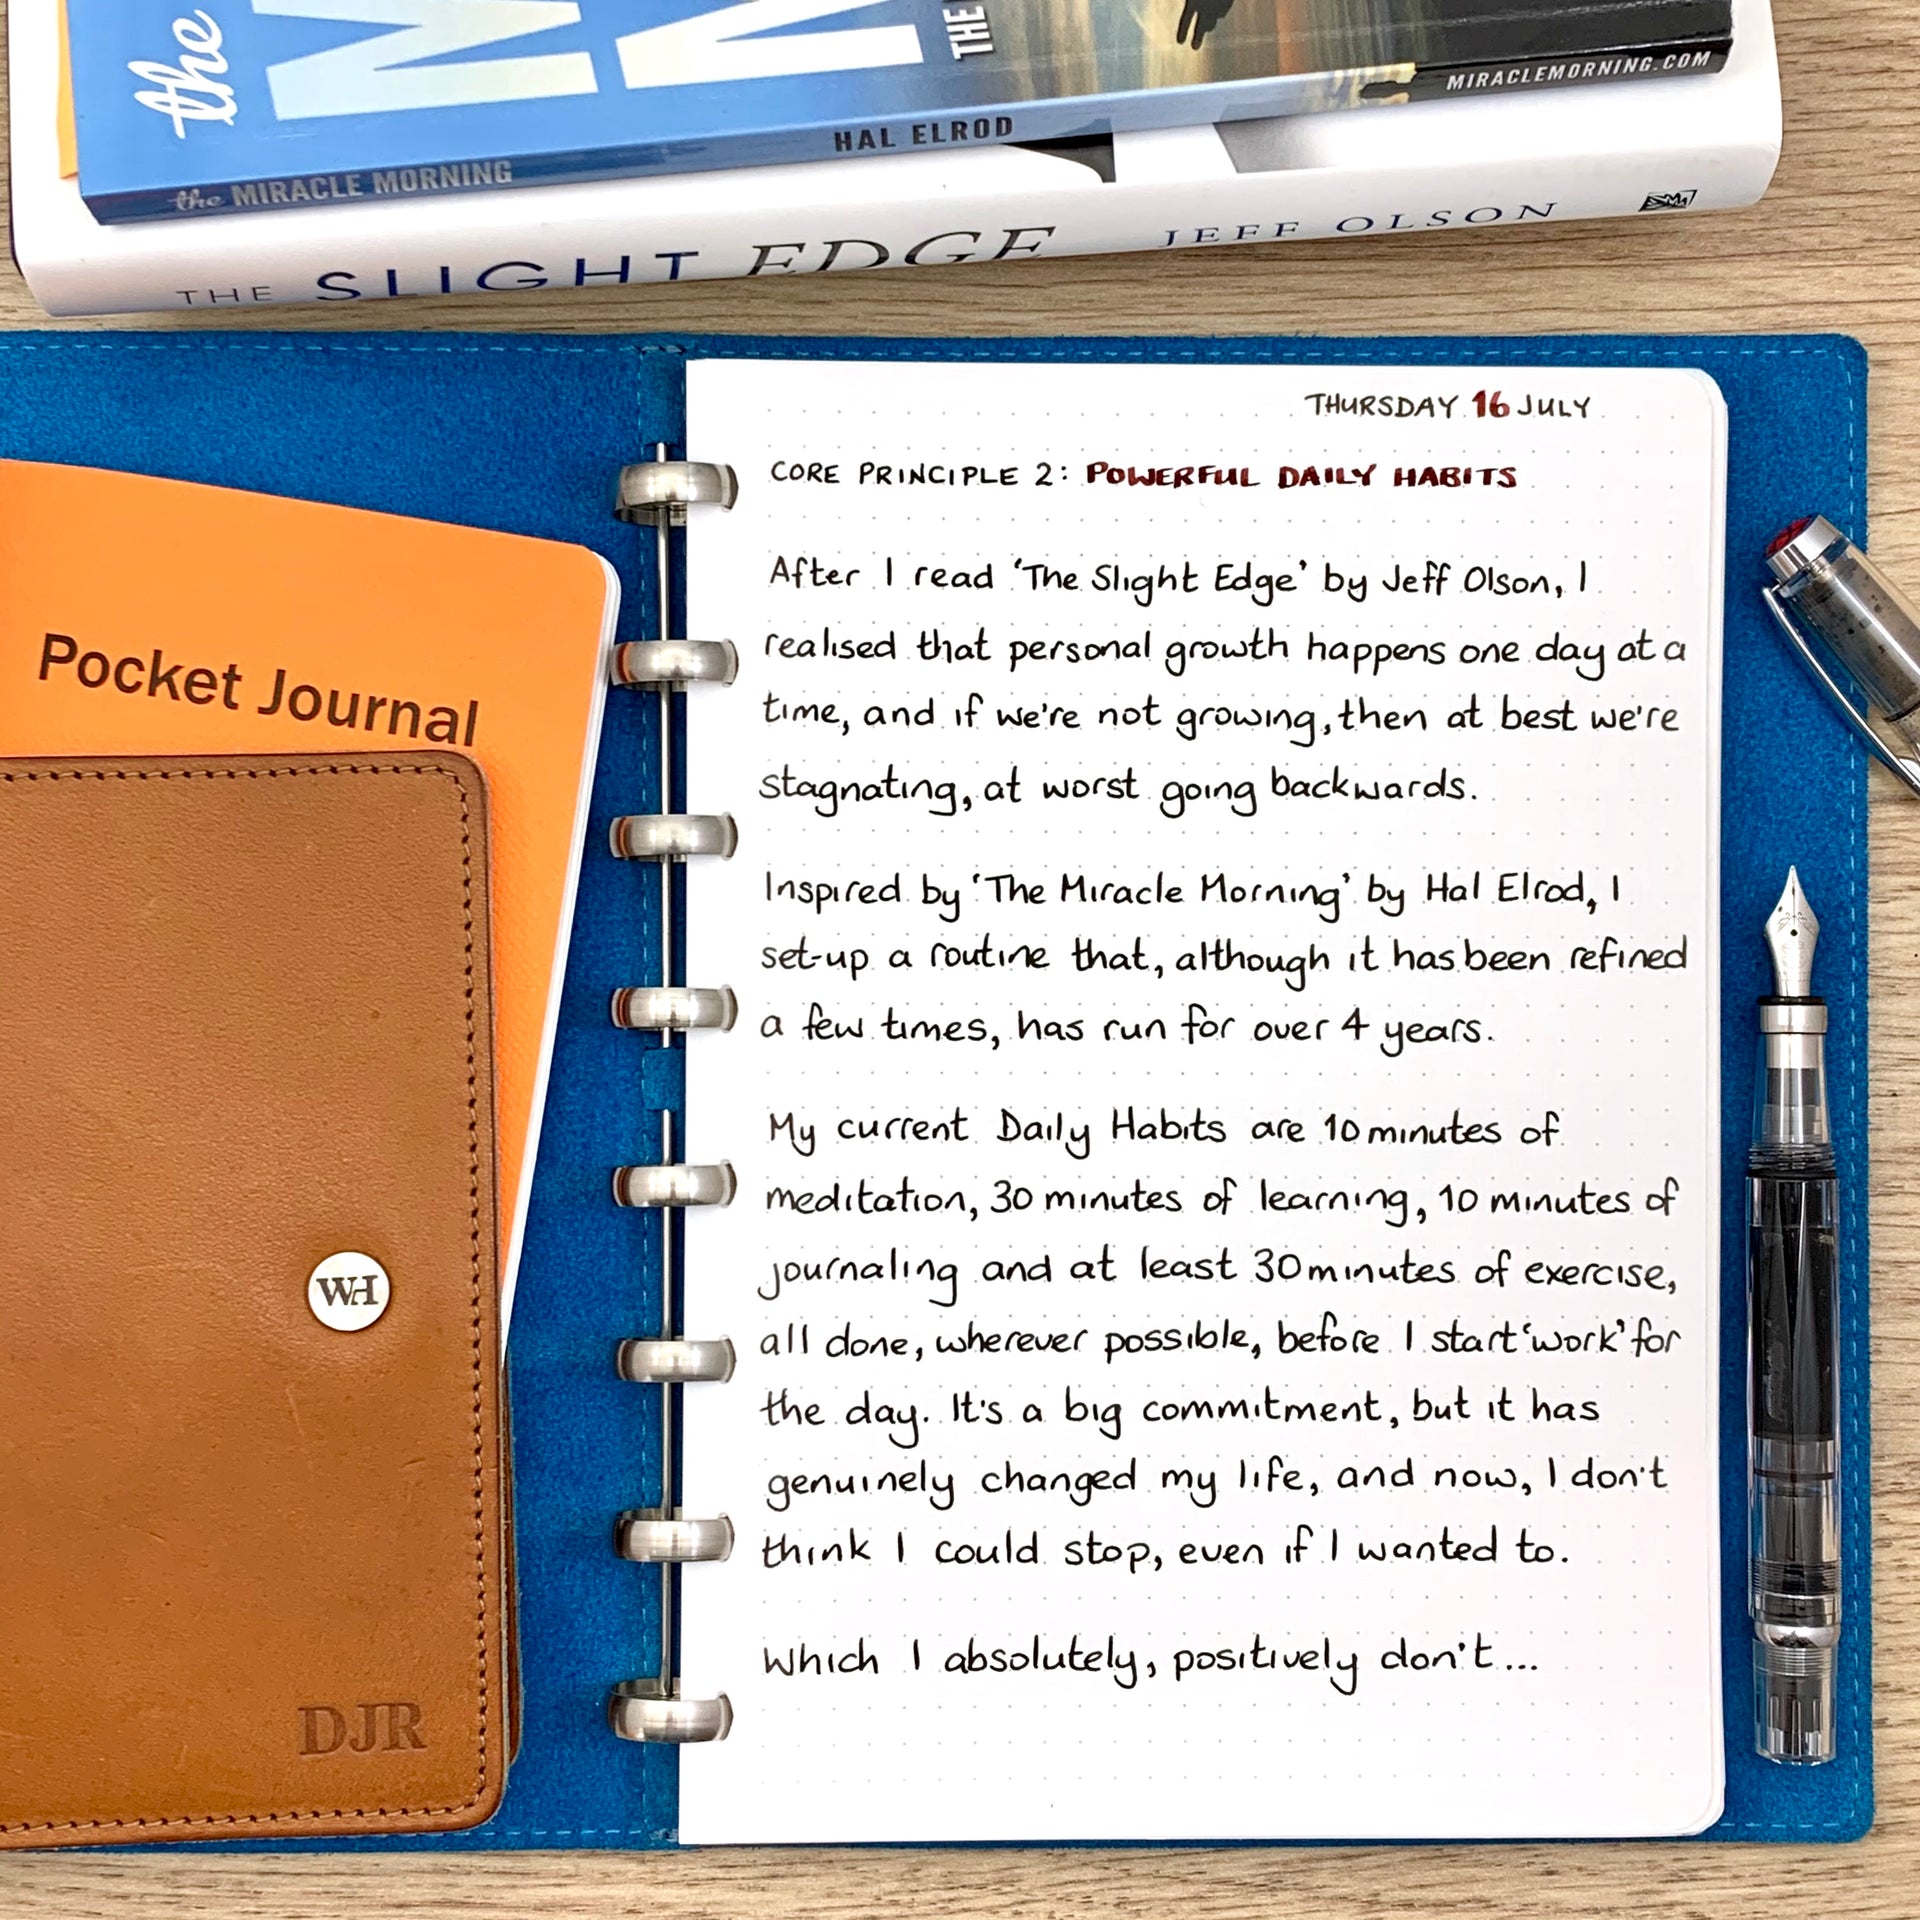 the
M
M
THE
MIRACLEMORNING.COM
the MIRACLE MORNING HAL ELROD
THE SLIGHT EDGE JEFF OLSON
THURSDAY 16 JULY
CORE PRINCIPLE 2: POWERFUL DAILY HABITS
After I read ‘The Slight Edge’ by Jeff Olson, I
realised that personal growth happens one day at a
time, and if we're not growing, then at best we're
stagnating, at worst going backwards.
Inspired by ‘The Miracle Morning’ by Hal Elrod, I
set-up a routine that, although it has been refined
a few times, has run for over 4 years.
My current Daily Habits are 10 minutes of
meditation, 30 minutes of learning, 10 minutes of
journaling and at least 30 minutes of exercise,
all done, wherever possible, before I start ‘work’ for
the day. It's a big commitment, but it has
genuinely changed my life, and now, I don't
think I could stop, even if I wanted to.
Which I absolutely, positively don't...
Pocket Journal
WH
DJR